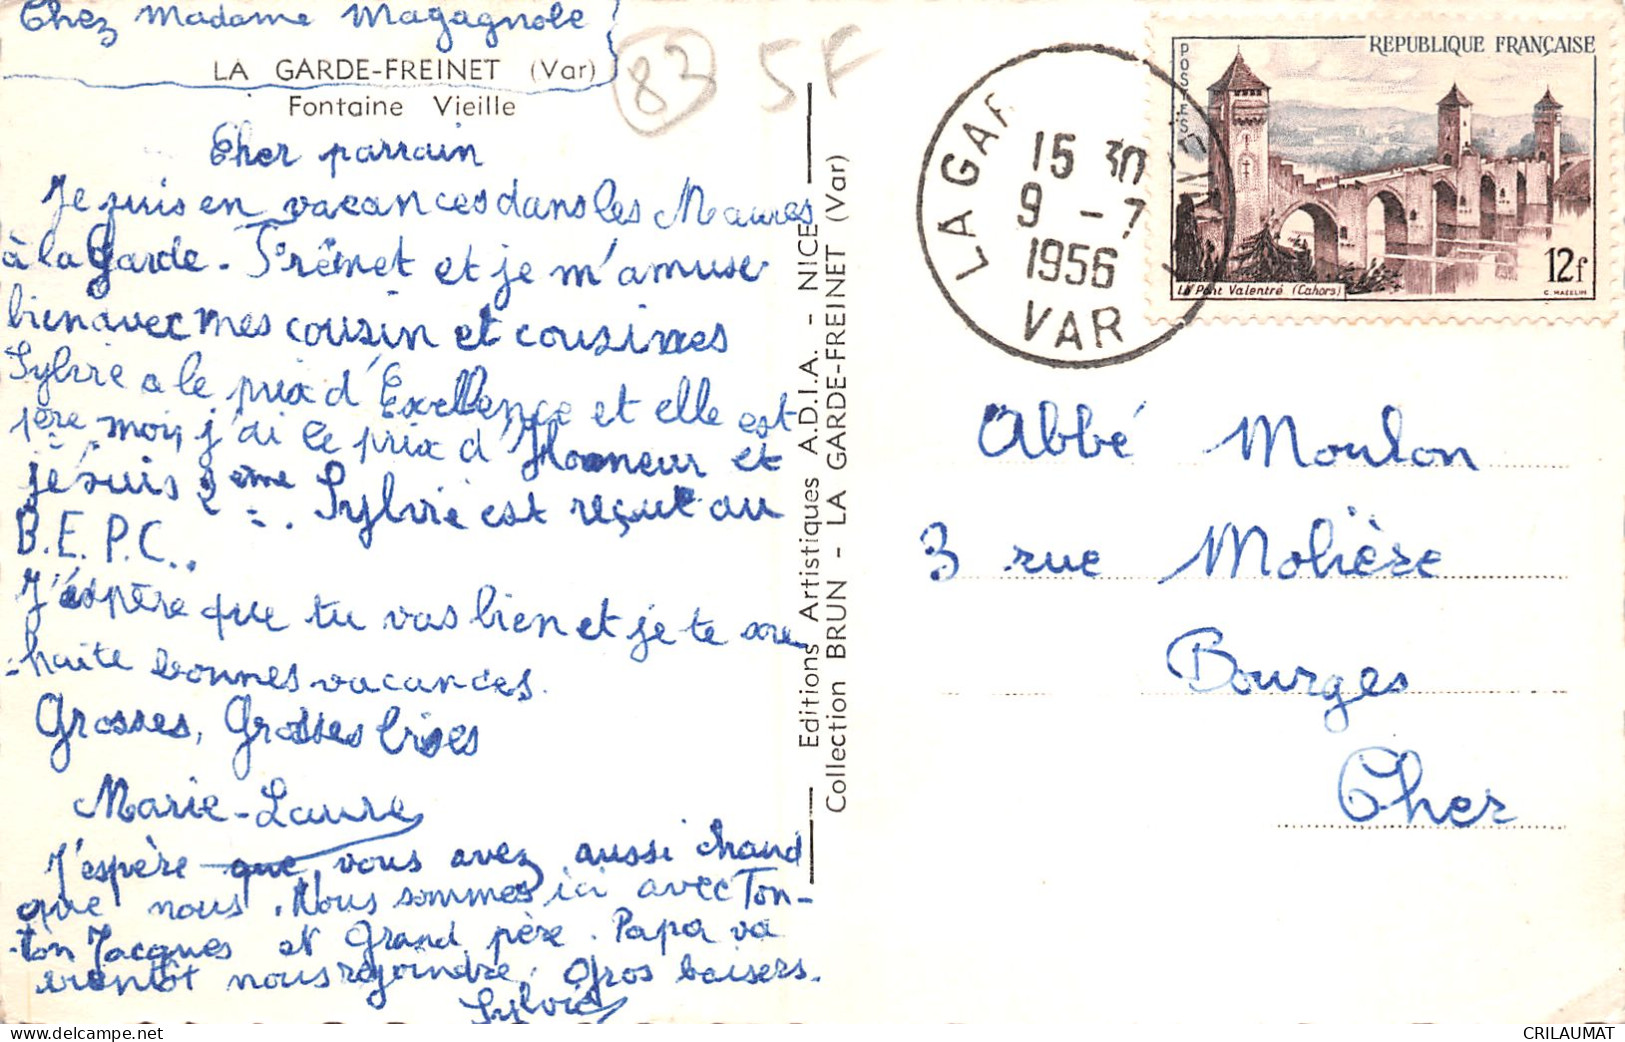 Chez Madame Magagnole
LA GARDE-FREINET (Var)
Fontaine Vieille
83
5F
Cher parrain
Je suis en vacances dans les Maures
à la Garde-Freinet et je m'amuse
bien avec mes cousin et cousines
Sylvie a le prix d'Excellence et elle est
1ère moi, j'ai le prix d'Honneur et
je suis 2ème. Sylvie est reçue au
B.E.P.C..
J'éspère que tu vas bien et je te sou
-haite bonnes vacances.
Grosses, Grosses bises
Marie-Laure
J'espère que vous avez aussi chaud
que nous. Nous sommes ici avec Ton-
-ton Jacques et Grand père. Papa va
bientôt nous rejoindre. Gros baisers.
Sylvie
Editions Artistiques A.D.I.A. - NICE
Collection BRUN - LA GARDE-FREINET (Var)
LA GAR
15 30
9 - 7
1956
VAR
REPUBLIQUE FRANÇAISE
POSTES
12f
Le Pont Valentré (Cahors)
C. MAZELIN
Abbé Moulon
3 rue Molière
Bourges
Cher
www.delcampe.net
CRILAUMAT